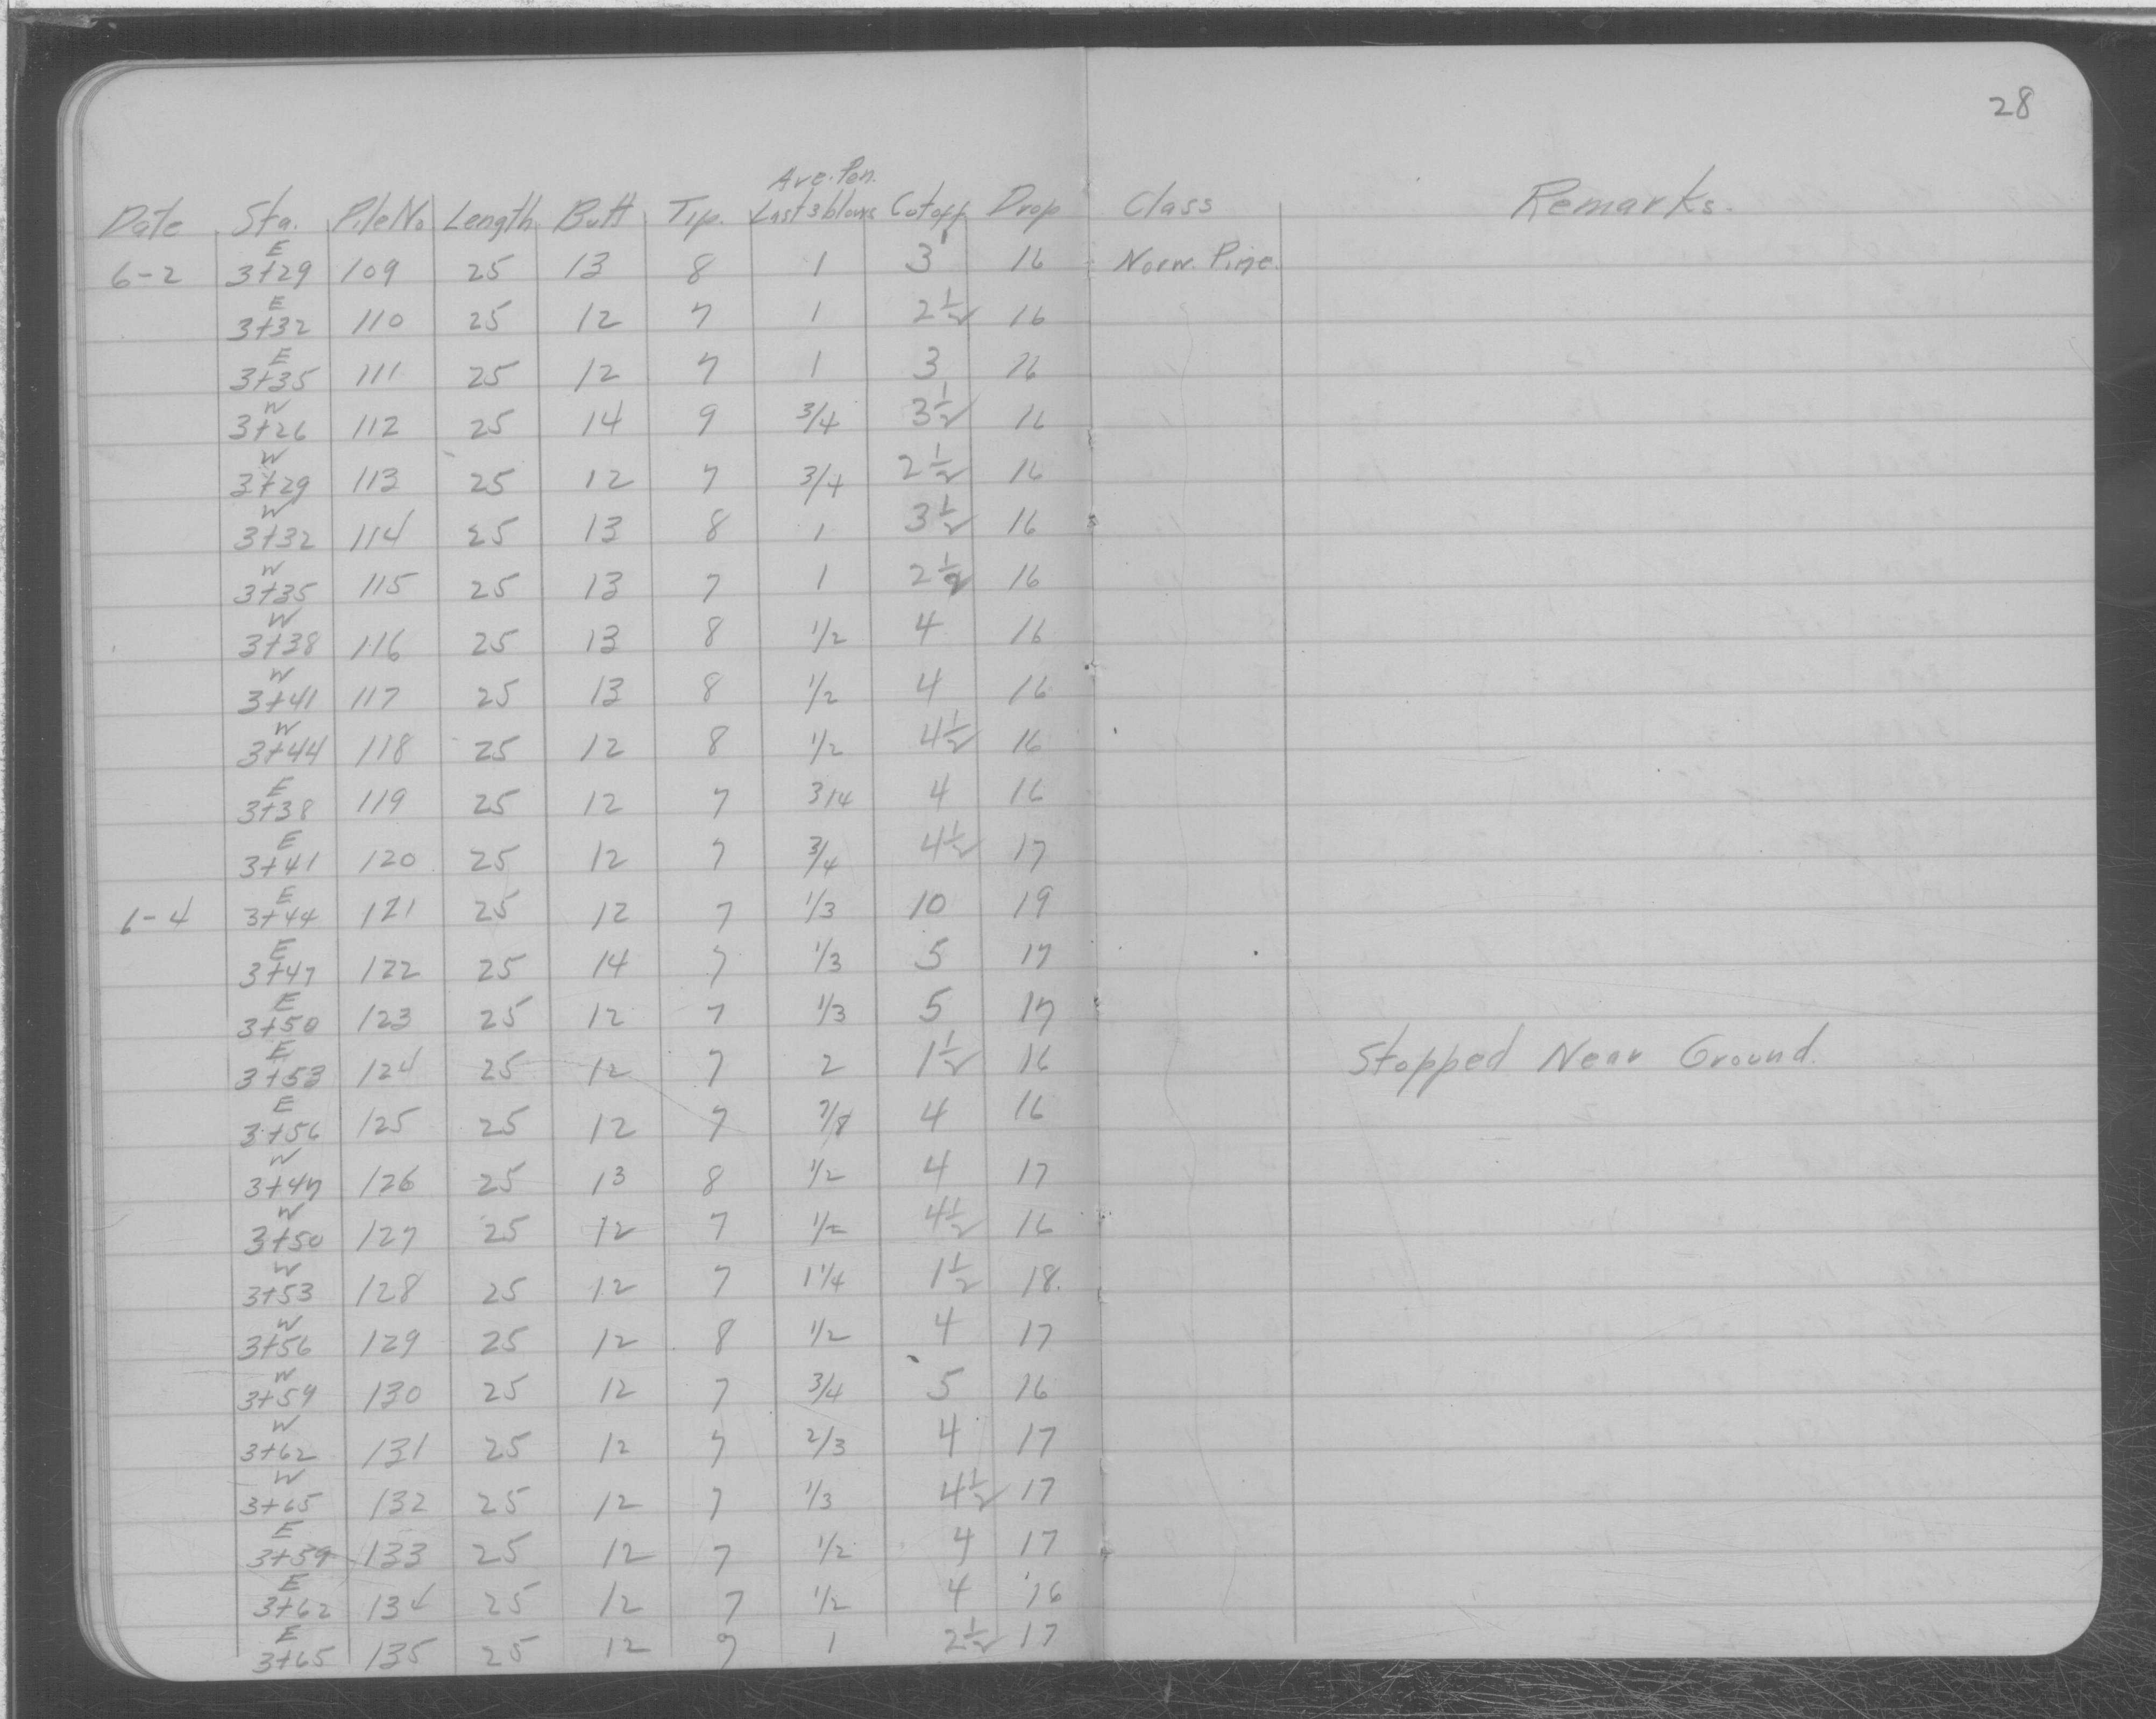 28
Ave. Pen.
Date Sta. Pile No Length Butt Tip. Last 3 blows Cutoff Drop Class Remarks.
E
6-2 3+29 109 25 13 8 1 3' 16 Norw. Pine.
E
3+32 110 25 12 7 1 2 1/2 16
E
3+35 111 25 12 7 1 3 16
W
3+26 112 25 14 9 3/4 3 1/2 16
W
3+29 113 25 12 7 3/4 2 1/2 16
W
3+32 114 25 13 8 1 3 1/2 16
W
3+35 115 25 13 7 1 2 1/2 16
W
3+38 116 25 13 8 1/2 4 16
W
3+41 117 25 13 8 1/2 4 16
W
3+44 118 25 12 8 1/2 4 1/2 16
E
3+38 119 25 12 7 3/4 4 16
E
3+41 120 25 12 7 3/4 4 1/2 17
E
6-4 3+44 121 25 12 7 1/3 10 19
E
3+47 122 25 14 7 1/3 5 17
E
3+50 123 25 12 7 1/3 5 17
E
3+53 124 25 12 7 2 1 1/2 16 Stopped Near Ground.
E
3+56 125 25 12 7 7/8 4 16
W
3+47 126 25 13 8 1/2 4 17
W
3+50 127 25 12 7 1/2 4 1/2 16
W
3+53 128 25 12 7 1 1/4 1 1/2 18.
W
3+56 129 25 12 8 1/2 4 17
W
3+59 130 25 12 7 3/4 5 16
W
3+62 131 25 12 7 2/3 4 17
W
3+65 132 25 12 7 1/3 4 1/2 17
E
3+59 133 25 12 7 1/2 4 17
E
3+62 134 25 12 7 1/2 4 16
E
3+65 135 25 12 7 1 2 1/2 17